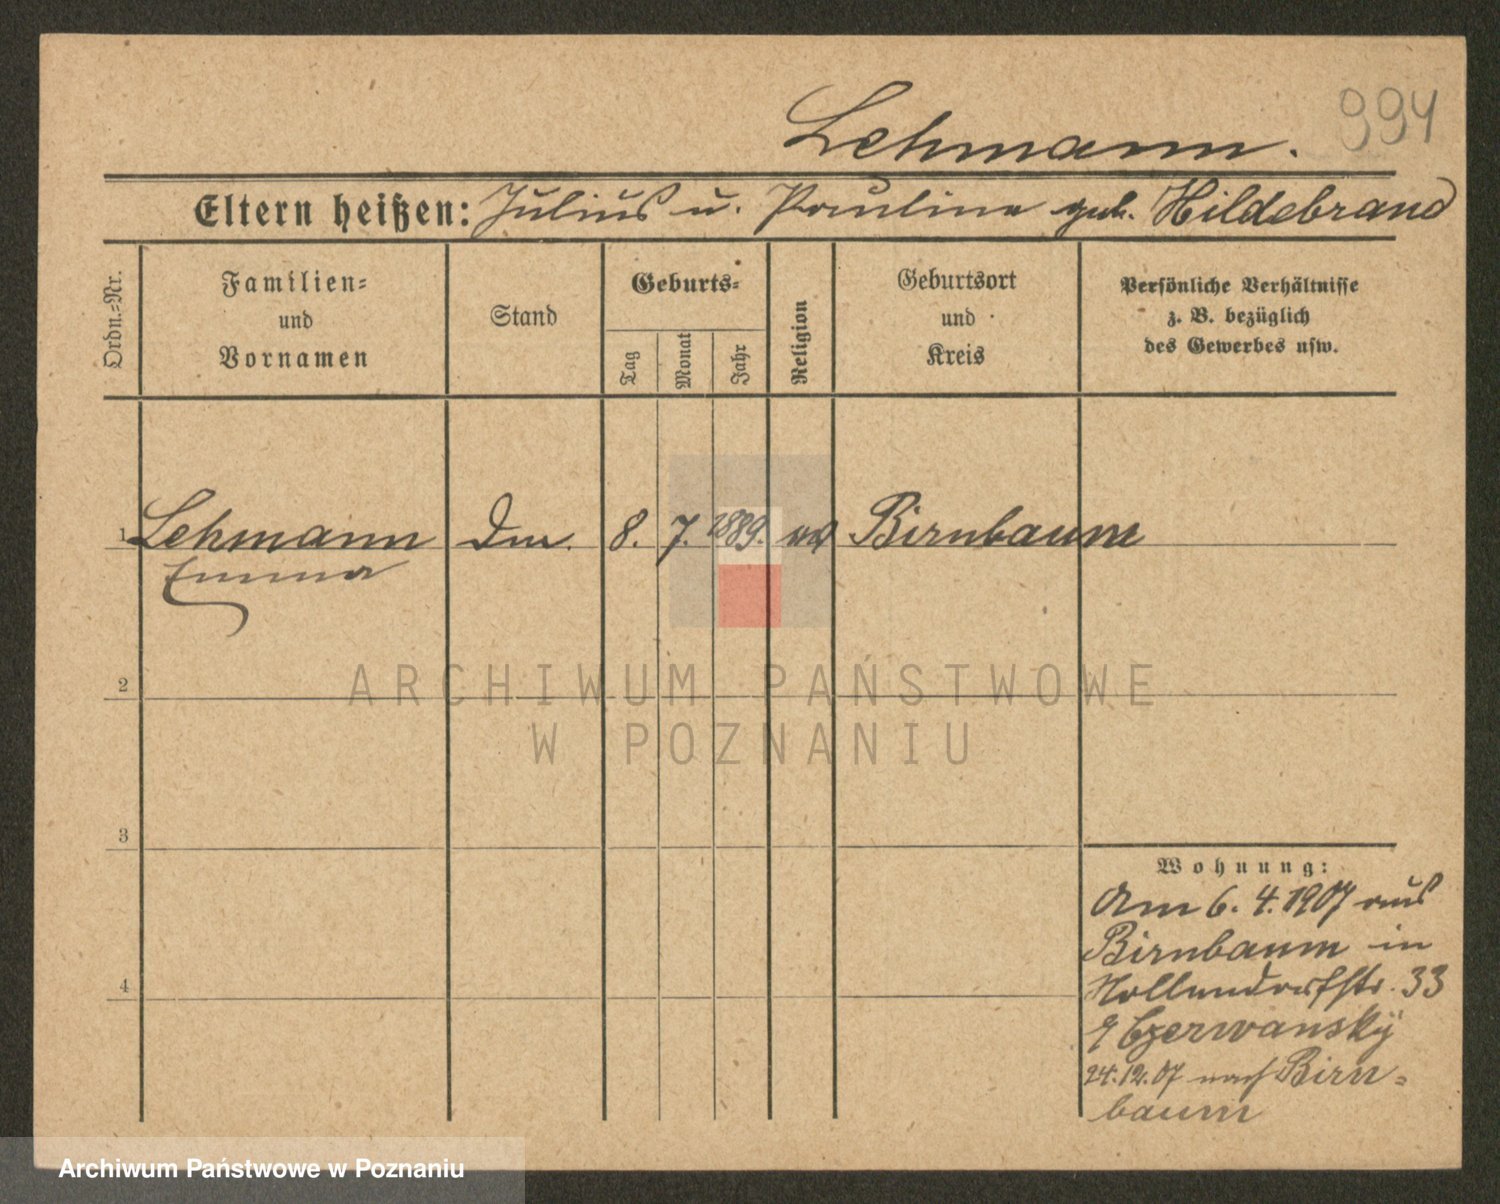 994
Lehmann.
Eltern heißen: Julius u. Pauline geb. Hildebrand
Ordn.-Nr.
Familien-
und
Vornamen
Stand
Geburts-
Tag
Monat
Jahr
Religion
Geburtsort
und
Kreis
Persönliche Verhältnisse
z. B. bezüglich
des Gewerbes usw.
1 Lehmann 8. 7. 1889. Birnbaum
Emma
ARCHIWUM PAŃSTWOWE
W POZNANIU
2
3
4
Wohnung:
Am 6. 4. 1907 aus
Birnbaum in
Hollendorfstr. 33
Czerwansky
24.12.07 nach Birn-
baum
Archiwum Państwowe w Poznaniu